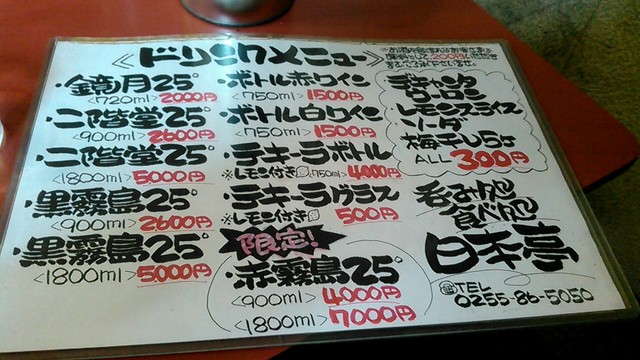 ≪ドリンクメニュー≫
・鏡月25°
<720ml>2000円
・二階堂25°
<900ml>2600円
・二階堂25°
<1800ml>5000円
・黒霧島25°
<900ml>2600円
・黒霧島25°
<1800ml>5000円
・ボトル赤ワイン
<750ml>1500円
・ボトル白ワイン
<750ml>1500円
・テキーラボトル
※レモン付き<750ml>4000円
・テキーラグラス
※レモン付き 500円
限定!
・赤霧島25°
<900ml>4000円
<1800ml>7000円
デキャンタ
ウーロン
レモンスライス
ソーダ
梅干し5ヶ
ALL 300円
呑み処
食べ処
日本亭
TEL
0255-86-5050